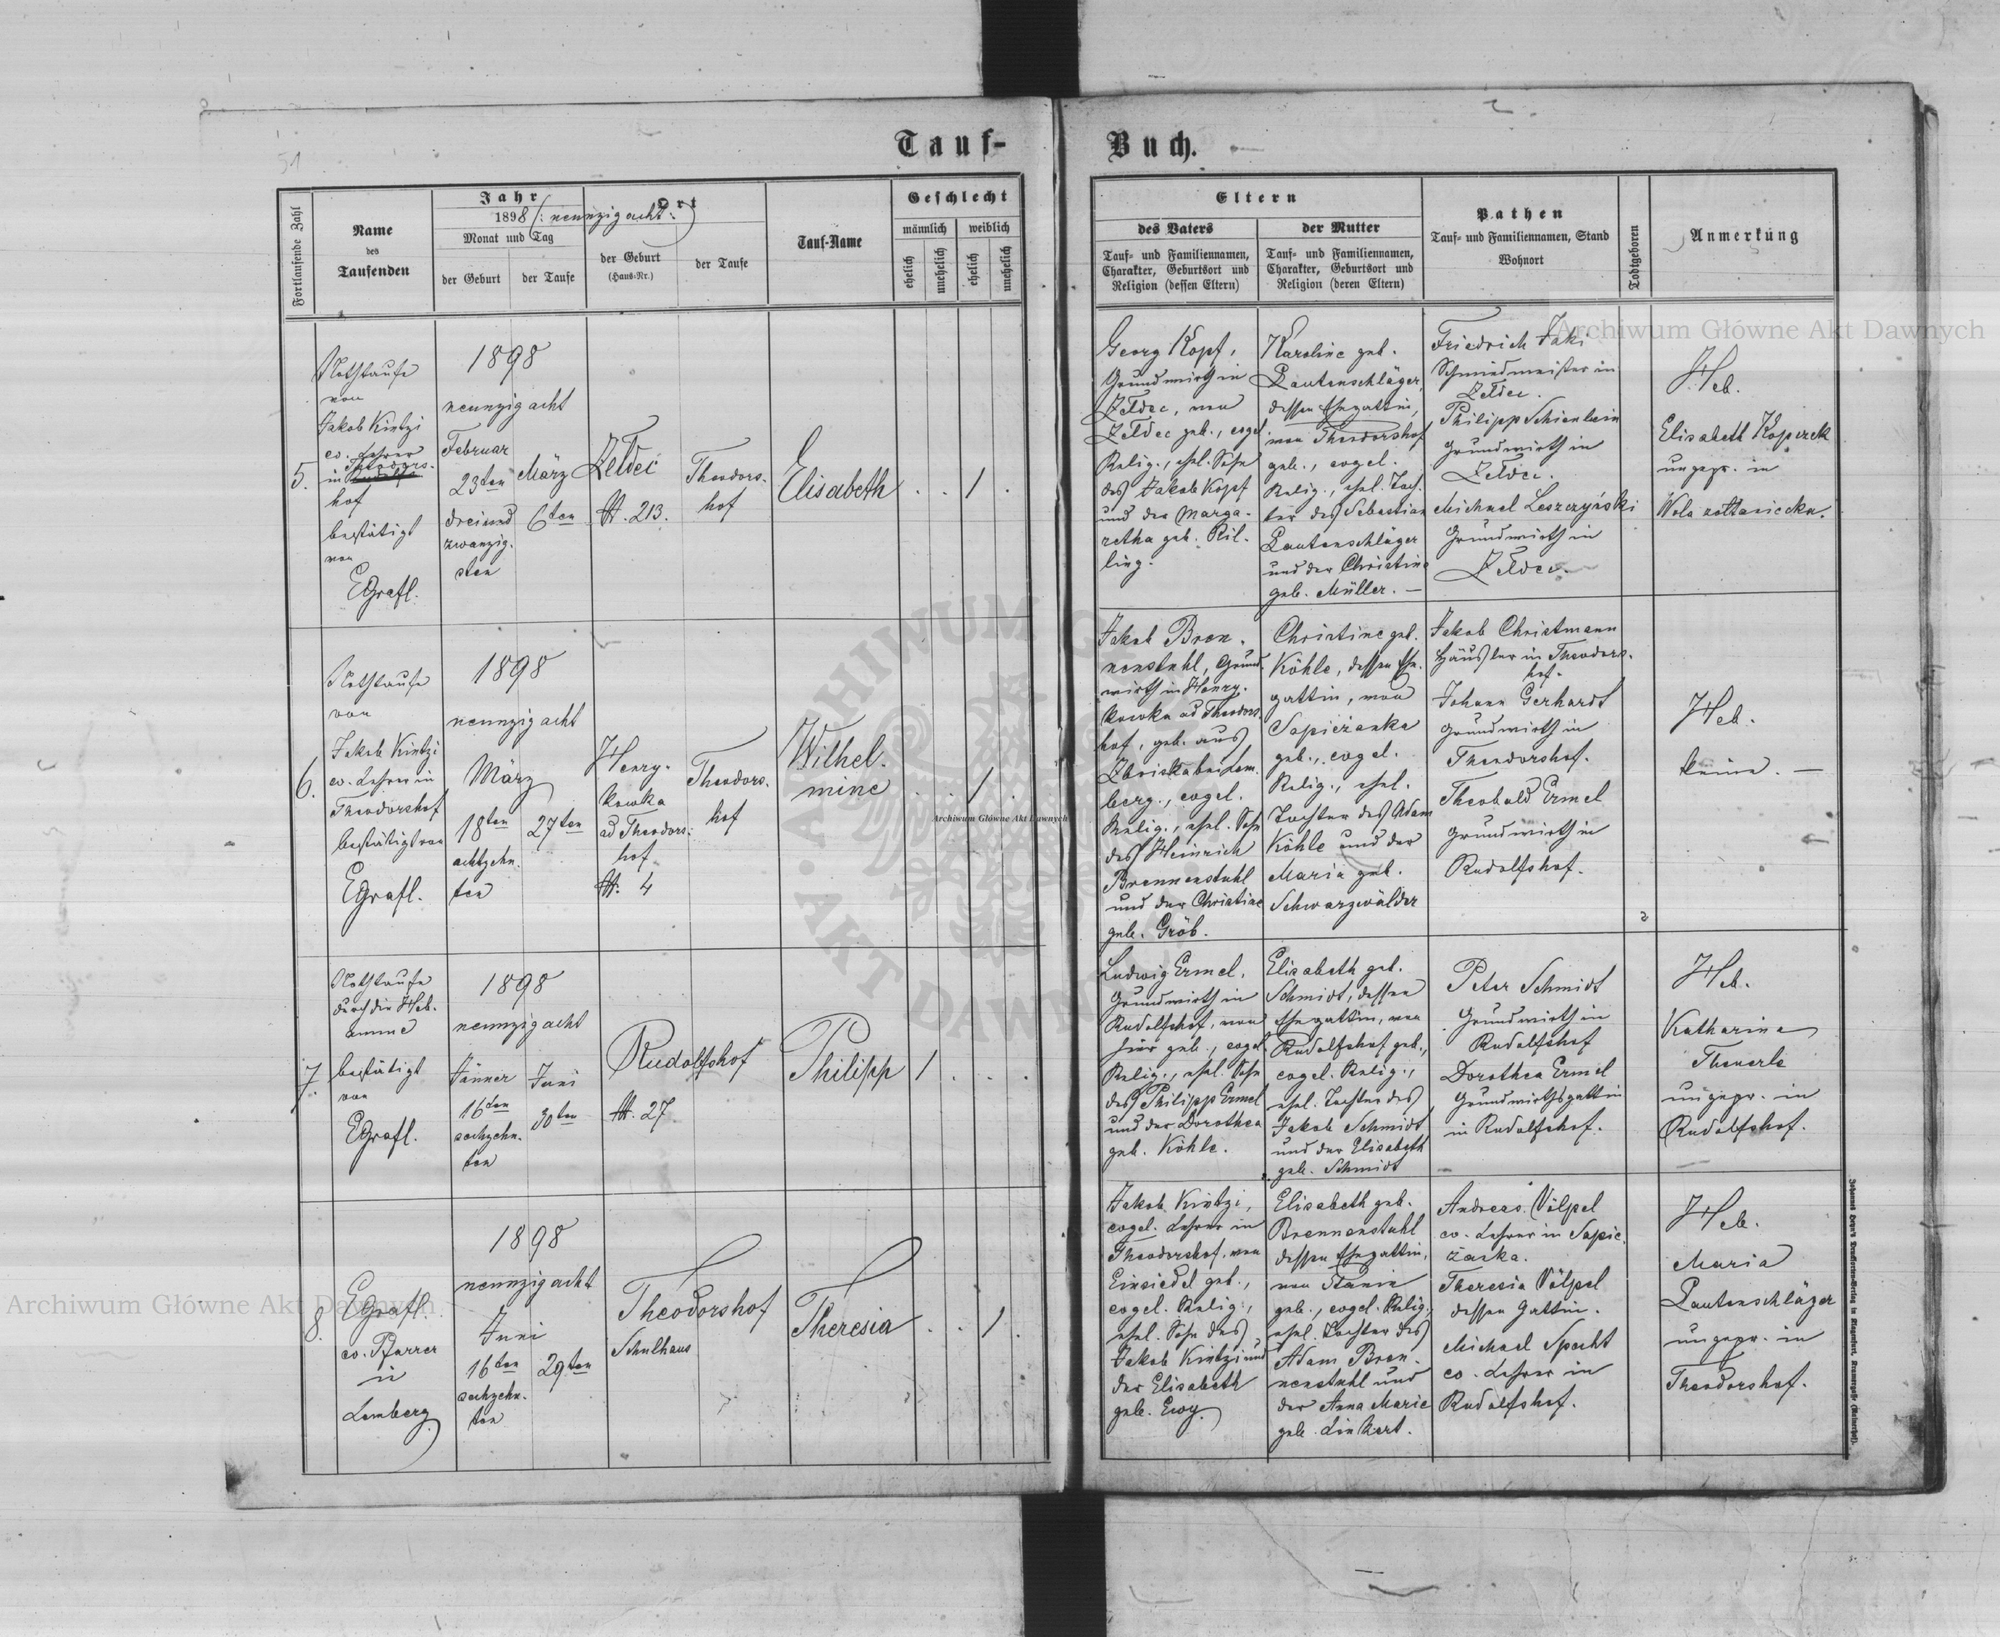 Tauf-
Buch.
51
Fortlaufende Zahl
Name
des
Taufenden
Jahr
1898 (: neunzig acht :)
Monat und Tag
der Geburt
der Taufe
Ort
der Geburt
(Haus-Nr.)
der Taufe
Tauf-Name
Geschlecht
männlich
weiblich
ehelich
unehelich
ehelich
unehelich
Eltern
des Vaters
Tauf- und Familiennamen,
Charakter, Geburtsort und
Religion (dessen Eltern)
der Mutter
Tauf- und Familiennamen,
Charakter, Geburtsort und
Religion (deren Eltern)
Pathen
Tauf- und Familiennamen, Stand
Wohnort
Todtgeboren
Anmerkung
5.
Nothtaufe
von
Jakob Kintzi
ev. Lehrer
in Theodors-
hof
bestätigt
von
EGrafl.
1898
neunzig acht
Februar
23ten
dreiund
zwanzig-
sten
März
6ten
Zeldec
N. 213.
Theodors-
hof
Elisabeth
. . 1 .
Georg Kopf,
Grundwirth in
Zeldec, von
Zeldec geb., evgel
Relig., ehel. Sohn
des Jakob Kopf
und der Marga-
retha geb. Ril-
ling.
Karoline geb.
Lautenschläger,
dessen Ehegattin,
von Theodorshof
geb., evgel.
Relig., ehel. Toch-
ter des Sebastian
Lautenschläger
und der Christine
geb. Müller. —
Friedrich Jaki
Schmiedmeister in
Zeldec.
Philipp Schienbein
Grundwirth in
Zeldec.
Michael Leszczyński
Grundwirth in
Zeldec.
Heb.
Elisabeth Koperek
ungepr. in
Wola zoltaniecka.
6.
Nothtaufe
von
Jakob Kintzi
ev. Lehrer in
Theodorshof
bestätigt von
EGrafl.
1898
neunzig acht
März
18ten
achtzehn-
ten
27ten
Henry-
kowka
ad Theodors-
hof
N. 4
Theodors-
hof
Wilhel-
mine
. . 1 .
Jakob Bren-
nenstuhl, Grund-
wirth in Henry-
kowka ad Theodors-
hof, geb. aus
bei Lem-
berg, evgel.
Relig., ehel. Sohn
des Heinrich
Brennenstuhl
und der Christine
geb. Gröb.
Christine geb.
Köhle, dessen Ehe-
gattin, von
Sapieżanka
geb., evgel.
Relig., ehel.
Tochter des Adam
Köhle und der
Maria geb.
Schwarzwälder
Jakob Christmann
Häusler in Theodors-
hof.
Johann Gerhardt
Grundwirth in
Theodorshof.
Theobald Ermel
Grundwirth in
Rudolfshof.
Heb.
keine. —
7.
Nothtaufe
durch die Heb-
amme
bestätigt
von
EGrafl.
1898
neunzig acht
Jänner
16ten
sechzehn-
ten
Juni
30ten
Rudolfshof
N. 27
Philipp
1 . . .
Ludwig Ermel,
Grundwirth in
Rudolfshof, von
hier geb., evgel.
Relig., ehel. Sohn
des Philipp Ermel
und der Dorothea
geb. Köhle.
Elisabeth geb.
Schmidt, dessen
Ehegattin, von
Rudolfshof geb.,
evgel. Relig.,
ehel. Tochter des
Jakob Schmidt
und der Elisabeth
geb. Schmidt
Peter Schmidt
Grundwirth in
Rudolfshof
Dorothea Ermel
Grundwirthsgattin
in Rudolfshof.
Heb.
Katharina
Theuerle
ungepr. in
Rudolfshof.
8.
EGrafl.
ev. Pfarrer
in
Lemberg
1898
neunzig acht
Juni
16ten
sechzehn-
ten
29ten
Theodorshof
Schulhaus
Theresia
. . 1 .
Jakob Kintzi,
evgel. Lehrer in
Theodorshof, von
Einsiedel geb.,
evgel. Relig.,
ehel. Sohn des
Jakob Kintzi und
der Elisabeth
geb. Ewy.
Elisabeth geb.
Brennenstuhl
dessen Ehegattin,
von Stanin
geb., evgel. Relig.,
ehel. Tochter des
Adam Bren-
nenstuhl und
der Anna Marie
geb. Linkert.
Andreas Völpel
ev. Lehrer in Sapie-
żanka.
Theresia Völpel
dessen Gattin.
Michael Specht
ev. Lehrer in
Rudolfshof.
Heb.
Maria
Lautenschläger
ungepr. in
Theodorshof.
Archiwum Główne Akt Dawnych
Archiwum Główne Akt Dawnych
Archiwum Główne Akt Dawnych